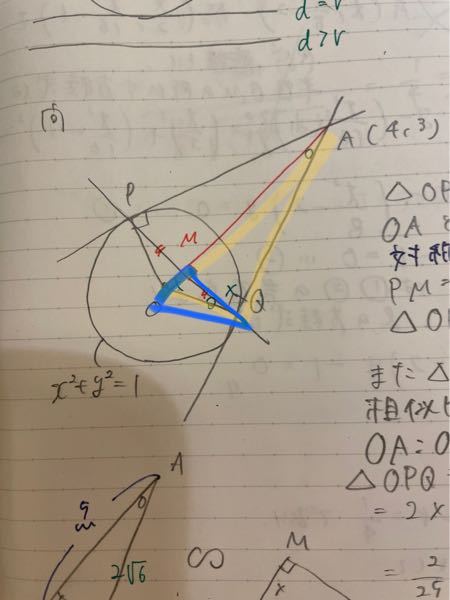 d=r
d>r
A(4,3)
P
M
Q
O
x²+y²=1
△OP
OA
対称
PM=
△OP
また△
相似比
OA:O
△OPQ
=2×
=2/25
A
5
2√6
∽
M
x